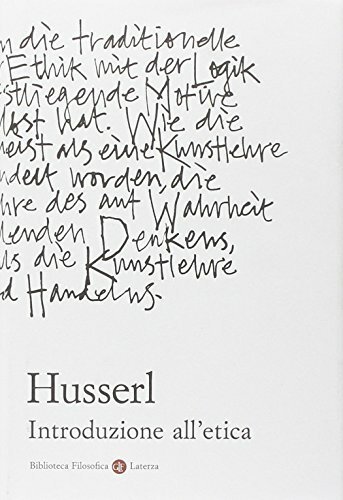 n die traditionelle
Ethik mit der Logik
stliegende Motive
lost hat. Wie die
meist als eine Kunstlehre
ndelt worden, die
hre des auf Wahrheit
lenden Denkens,
ls die Kunstlehre
d Handelns.
Husserl
Introduzione all'etica
Biblioteca Filosofica Laterza